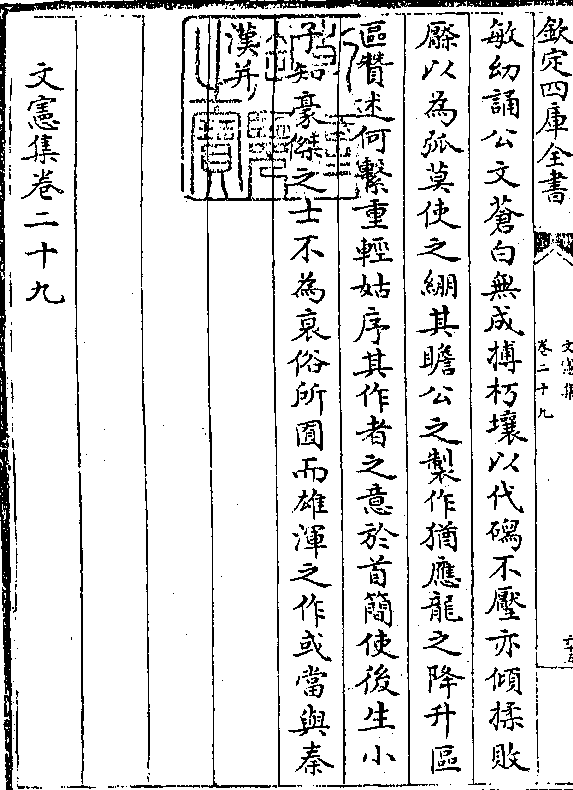 欽定四庫全書
文憲集
卷二十九
敏幼誦公文蒼白無成摶朽壤以代碣不壓亦傾揉敗
縻以為弧莫使之繃其瞻公之製作猶應龍之降升區
區贊述何繫重輕姑序其作者之意於首簡使後生小
子知豪傑之士不為衰俗所囿而雄渾之作或當與秦
漢并
文憲集卷二十九